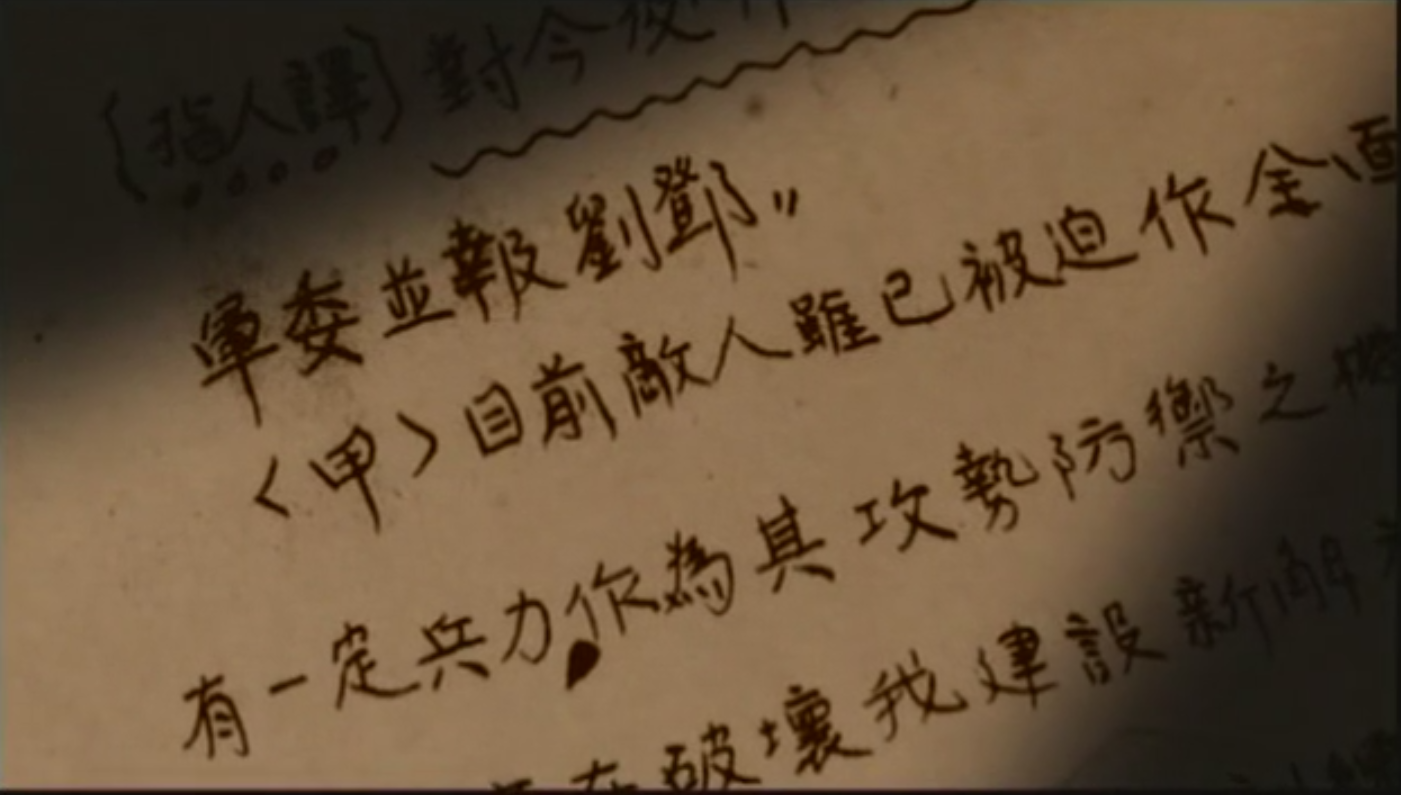 (指人譯)對今後作
軍委並報劉鄧〃
〈甲〉目前敵人雖已被迫作全面
有一定兵力作為其攻勢防禦之機
在破壞我建設新解